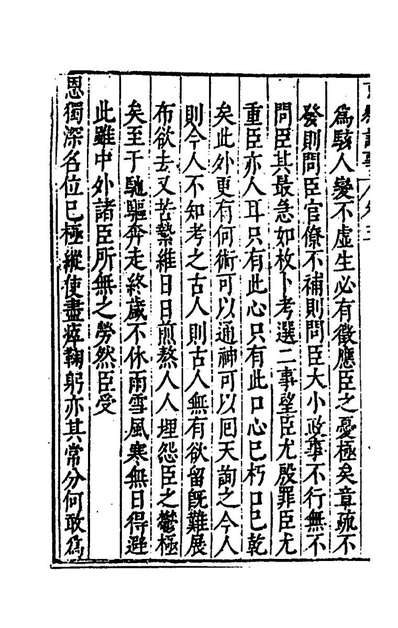 為駭人變不虛生必有徵應臣之憂極矣章疏不
發則問臣官僚不補則問臣大小政事不行無不
問臣其最急如枚卜考選二事望臣尤殷罪臣尤
重臣亦人耳只有此心只有此口心已朽口已乾
矣此外更有何術可以通神可以囘天詢之今人
則今人不知考之古人則古人無有欲留旣難展
布欲去又苦縶維日日煎熬人人埋怨臣之鬱極
矣至于馳驅奔走終歲不休雨雪風寒無日得避
此雖中外諸臣所無之勞然臣受
恩獨深名位已極縱使盡瘁鞠躬亦其常分何敢為